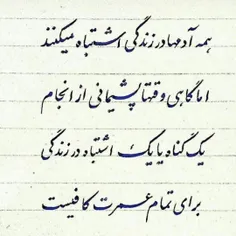 همه آدمها در زندگی اشتباه میکنند
اما گاهی وقتها پشیمانی از انجام
یک گناه یا یک اشتباه در زندگی
برای تمام عمرت کافیست